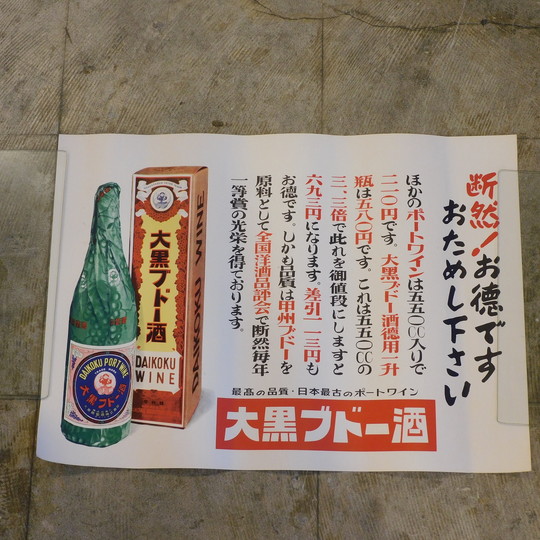 断然!お徳です
おためし下さい
ほかのポートワインは五五〇CC入りで
二一〇円です。大黒ブドー酒徳用一升
瓶は五八〇円です。これは五五〇CCの
三、三倍で此れを御値段にしますと
六九三円になります。差引一一三円も
お徳です。しかも品質は甲州ブドーを
原料として全国洋酒品評会で断然毎年
一等賞の光栄を得ております。
最高の品質・日本最古のポートワイン
大黒ブドー酒
大黒ブドー酒
DAIKOKU
WINE
DAIKOKU WINE
DAIKOKU PORTWINE
大黒ブドー酒